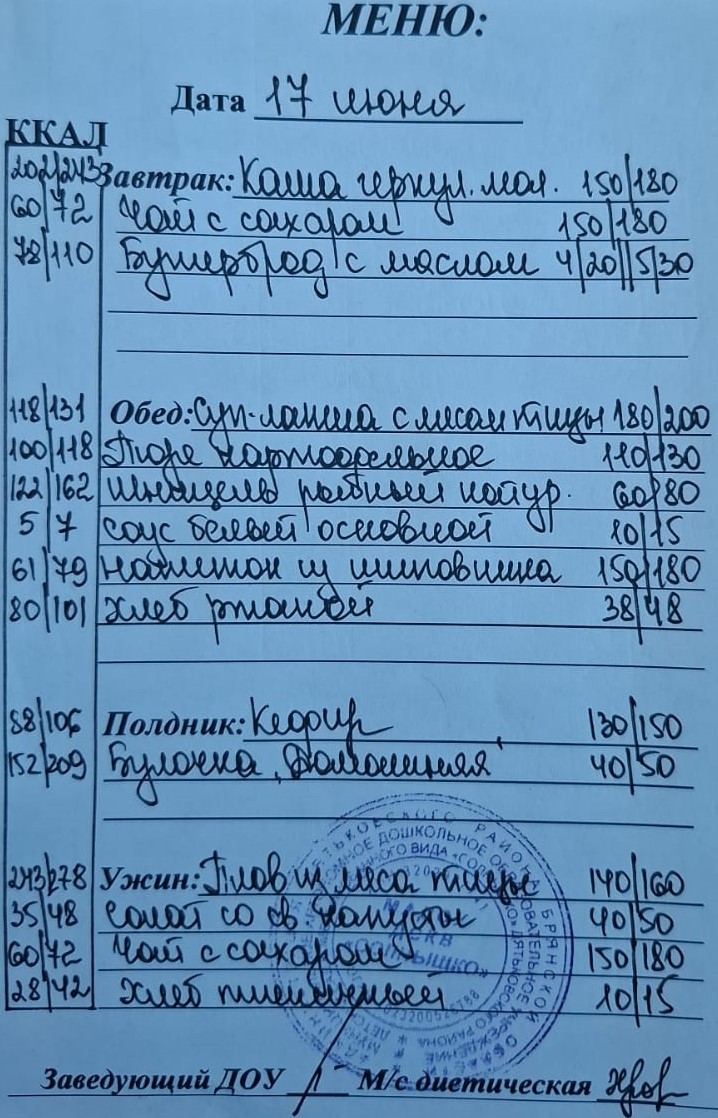 МЕНЮ:
Дата 17 июня
ККАЛ
202/243 Завтрак: Каша геркул. мол. 150/180
60/72 Чай с сахаром 150/180
78/110 Бутерброд с маслом 4/20||5/30
118/131 Обед: Суп-лапша с мясом птицы 180/200
100/118 Пюре картофельное 110/130
122/162 Шницель рыбный натур. 60/80
5/7 соус белый основной 10/15
61/79 напиток из шиповника 150/180
80/101 хлеб ржаной 38/48
88/106 Полдник: Кефир 130/150
152/209 Булочка "Домашняя 40/50
243/278 Ужин: Плов из мяса птицы 140/160
35/48 Салат со св капусты 40/50
60/72 Чай с сахаром 150/180
28/42 хлеб пшеничный 10/15
Заведующий ДОУ М/с диетическая